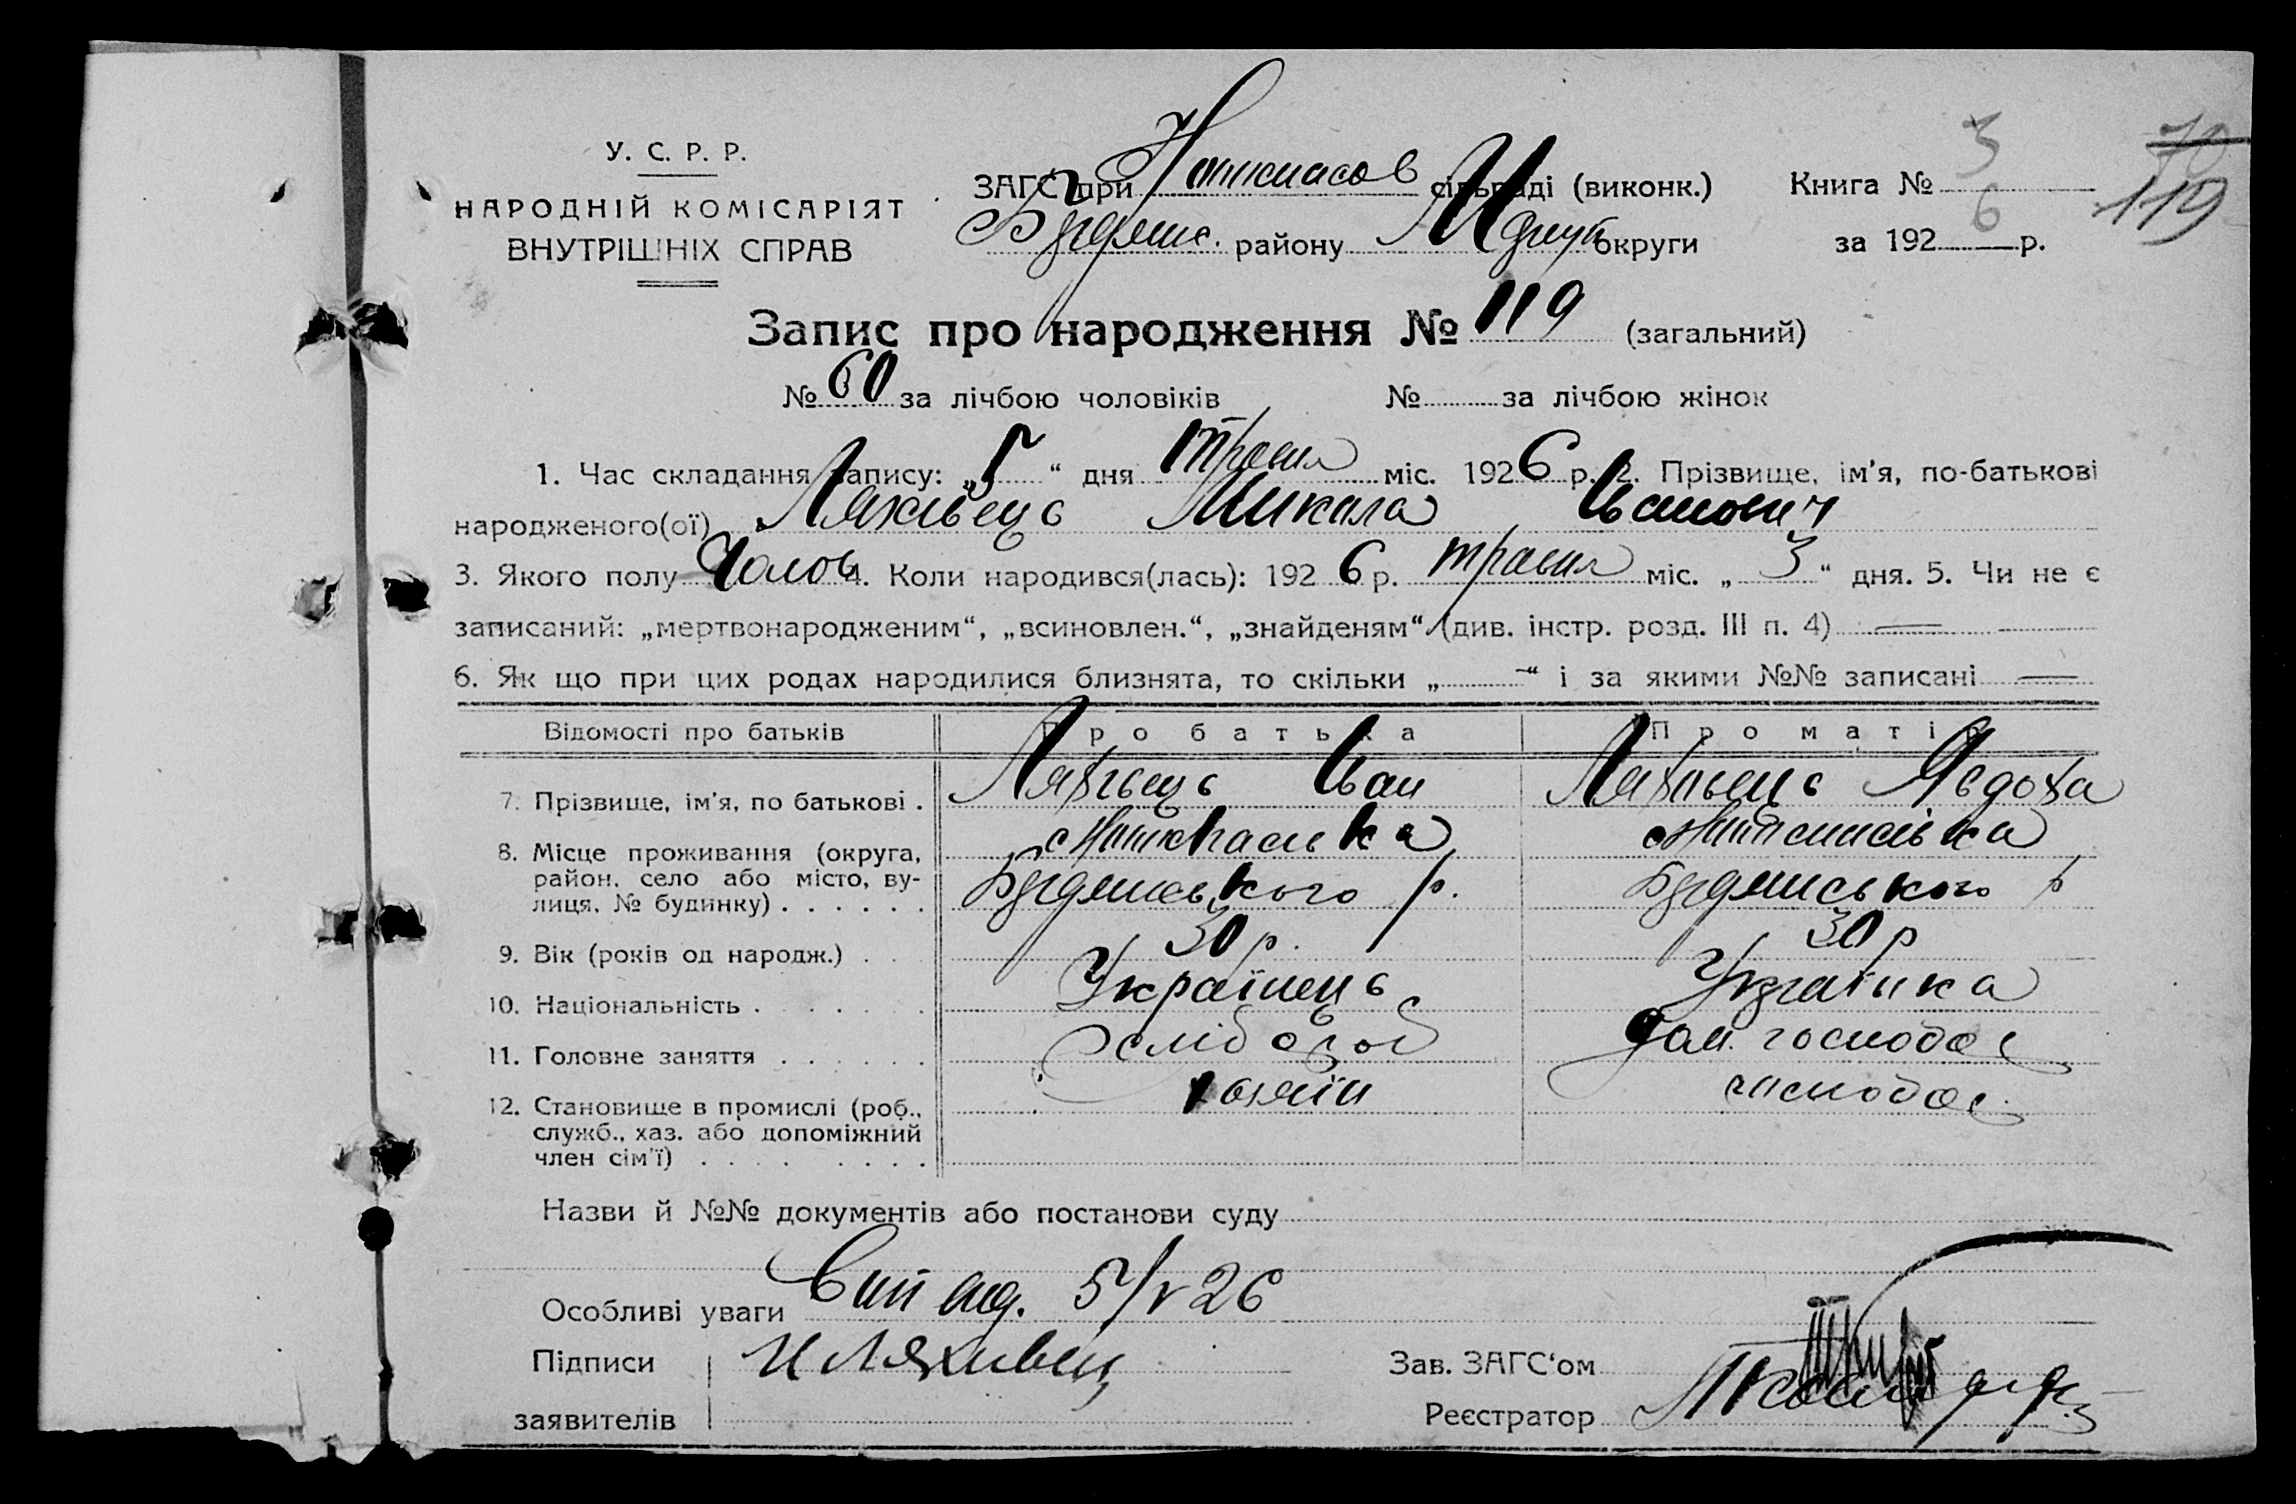 У. С. Р. Р.
НАРОДНІЙ КОМІСАРІЯТ
ВНУТРІШНІХ СПРАВ
ЗАГС при сільраді (виконк.)
району округи
Книга № 3
за 1926 р.
70
119
Запис про народження № 119 (загальний)
№ 60 за лічбою чоловіків № за лічбою жінок
1. Час складання запису: „5“ дня травня міс. 1926 р. 2. Прізвище, ім'я, по-батькові
народженого(ої) Ляхівець Микола Іванович
3. Якого полу Чолов 4. Коли народився(лась): 1926 р. травня міс. „3“ дня. 5. Чи не є
записаний: „мертвонародженим“, „всиновлен.“, „знайденям“ (див. інстр. розд. III п. 4) —
6. Як що при цих родах народилися близнята, то скільки „—“ і за якими №№ записані —
Відомості про батьків Про батька Про матір
7. Прізвище, ім'я, по батькові . Ляхівець Іван Ляхівець Явдоха
8. Місце проживання (округа,
район, село або місто, ву-
лиця, № будинку) . . . . . .
9. Вік (років од народж.) . . . 30 р. 30 р
10. Національність . . . . . . Українець Українка
11. Головне заняття . . . . . . хлібороб дом. господар
12. Становище в промислі (роб.,
служб., хаз. або допоміжний
член сім'ї) . . . . . . . .
хазяїн господар
Назви й №№ документів або постанови суду
Особливі уваги 5/V 26
Підписи И Ляхивец
заявителів
Зав. ЗАГС'ом
Реєстратор